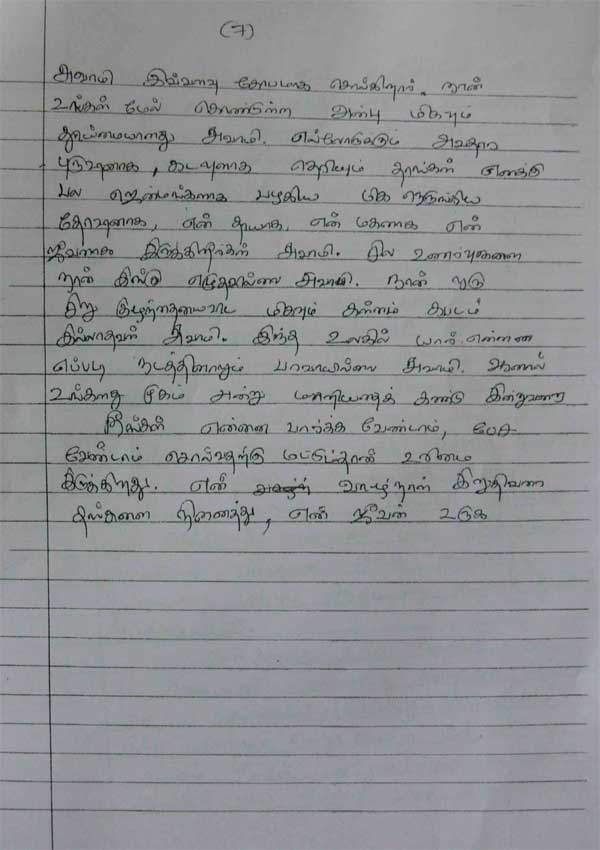 (7)
அவாமி இவ்வளவு கோபமாக செய்கிறார். நான்
உங்கள் மேல் கொண்டுள்ள அன்பு மிகவும்
தூய்மையானது அவாமி. எல்லோருக்கும் அவதார
புருஷனாக, கடவுளாக தெரியும் தாங்கள் எனக்கு
பல ஜென்மங்களாக பழகிய மிக நெருங்கிய
தோழனாக, என் தாயாக, என் மகனாக என்
ஜீவனாக இருக்கிறீர்கள் அவாமி. சில உணர்வுகளை
நான் இங்கு எழுதவில்லை அவாமி. நான் ஒரு
சிறு குழந்தையைவிட மிகவும் கள்ளம் கபடம்
இல்லாதவள் அவாமி. இந்த உலகில் யார் என்னை
எப்படி நடத்தினாலும் பரவாயில்லை அவாமி. ஆனால்
உங்களது முகம் அன்று மாறியதைக் கண்டு இன்றுவரை
நீங்கள் என்னை பார்க்க வேண்டாம், பேச
வேண்டாம் சொல்வதற்கு மட்டும்தான் உரிமை
இருக்கிறது. என் வாழ்நாள் இறுதிவரை
தங்களை நினைத்து, என் ஜீவன் உருக